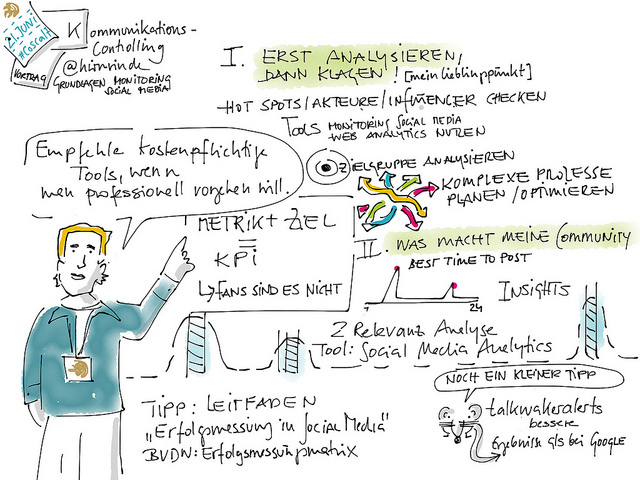 21. JUNI
#Coscal7
VORTRAG
Kommunikations-
Controlling
@hirnrinde
GRUNDLAGEN MONITORING
SOCIAL MEDIA
I. ERST ANALYSIEREN,
DANN KLAGEN! [mein lieblingspunkt]
HOT SPOTS/AKTEURE/INFLUENCER CHECKEN
TOOLS MONITORING SOCIAL MEDIA
WEB ANALYTICS NUTZEN
ZIELGRUPPE ANALYSIEREN
KOMPLEXE PROZESSE
PLANEN/OPTIMIEREN
Empfehle kostenpflichtige
Tools, wenn
man professionell vorgehen will.
METRIK + ZIEL
=
KPi
↳ FANS SIND ES NICHT
II. WAS MACHT MEINE Community
BEST TIME TO POST
INSIGHTS
24
2 Relevanz Analyse
Tool: Social Media Analytics
NOCH EIN KLEINER TIPP
talkwalkeralerts
bessere
Ergebnisse als bei GOOGLE
TIPP: LEITFADEN
„Erfolgsmessung in Social Media"
BVDW: Erfolgsmessungsmatrix